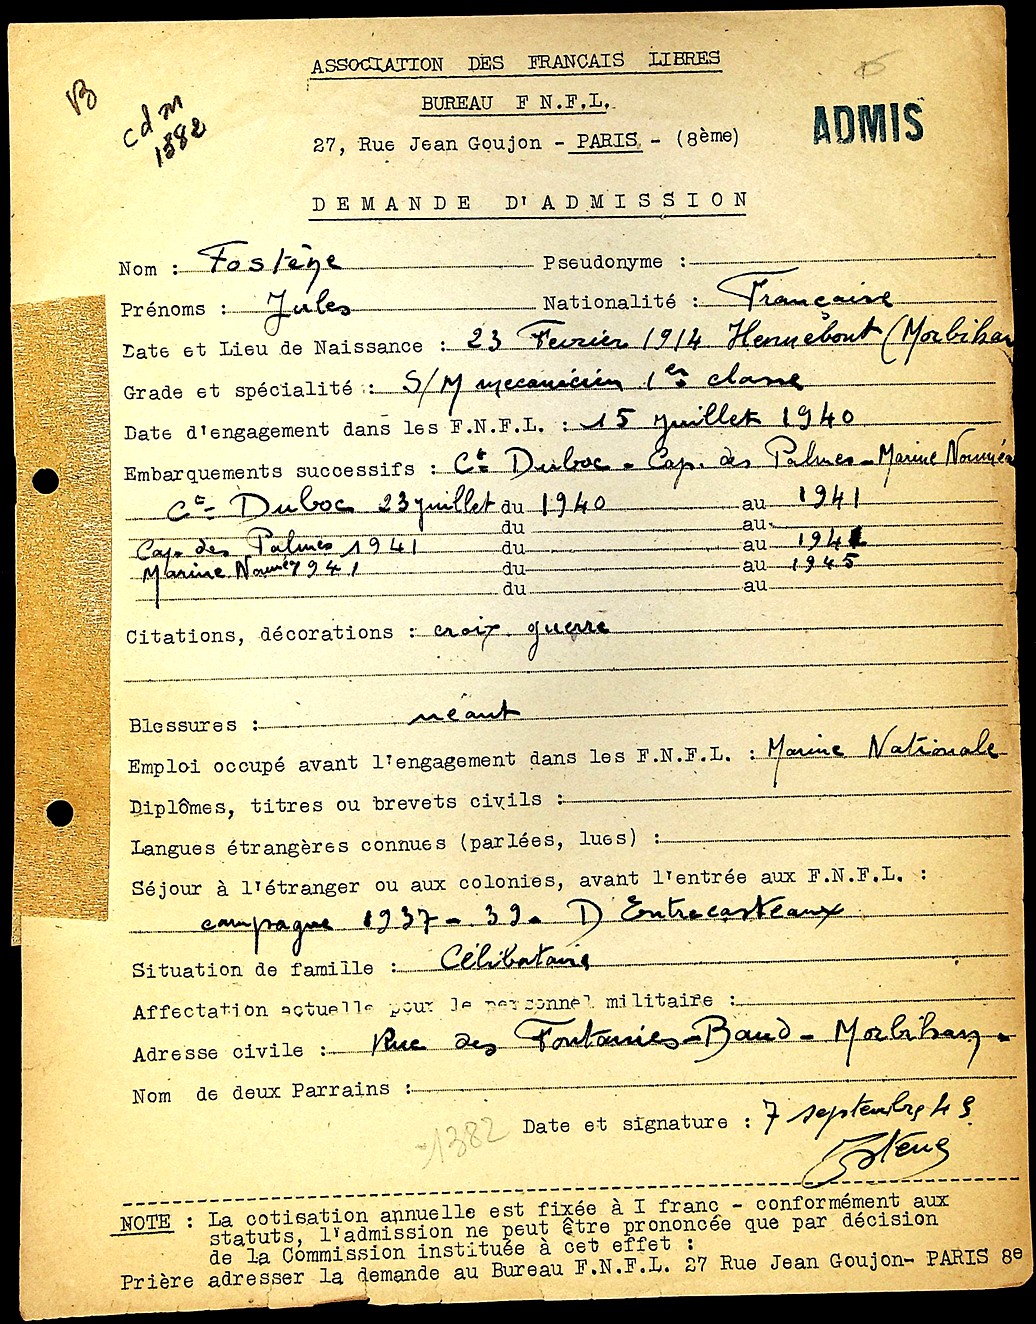 ASSOCIATION DES FRANCAIS LIBRES
BUREAU F N.F.L.
27, Rue Jean Goujon - PARIS - (8ème)
B
cdm
1382
ADMIS
DEMANDE D'ADMISSION
Nom : Fostége Pseudonyme :
Prénoms : Jules Nationalité : Française
Date et Lieu de Naissance : 23 Fevrier 1914 Hennebout (Morbihan
Grade et spécialité : S/M mecanicien 1er classe
Date d'engagement dans les F.N.F.L. : 15 juillet 1940
Embarquements successifs : Ct Duboc - Cap. des Palmes - Marine Nouméa
Ct Duboc 23 juillet du 1940 au 1941
du au
Cap. des Palmes 1941 du au 1941
Marine Noumé 1941 du au 1945
du au
Citations, décorations : croix guerre
Blessures : néant
Emploi occupé avant l'engagement dans les F.N.F.L. : Marine Nationale
Diplômes, titres ou brevets civils :
Langues étrangères connues (parlées, lues) :
Séjour à l'étranger ou aux colonies, avant l'entrée aux F.N.F.L. :
campagne 1937 - 39. D Entrecasteaux
Situation de famille : Célibataire
Affectation actuelle pour le personnel militaire :
Adresse civile : Rue des Fontaines - Baud - Morbihan -
Nom de deux Parrains :
Date et signature : 7 septembre 45
1382
NOTE : La cotisation annuelle est fixée à I franc - conformément aux
statuts, l'admission ne peut être prononcée que par décision
de la Commission instituée à cet effet :
Prière adresser la demande au Bureau F.N.F.L. 27 Rue Jean Goujon- PARIS 8e